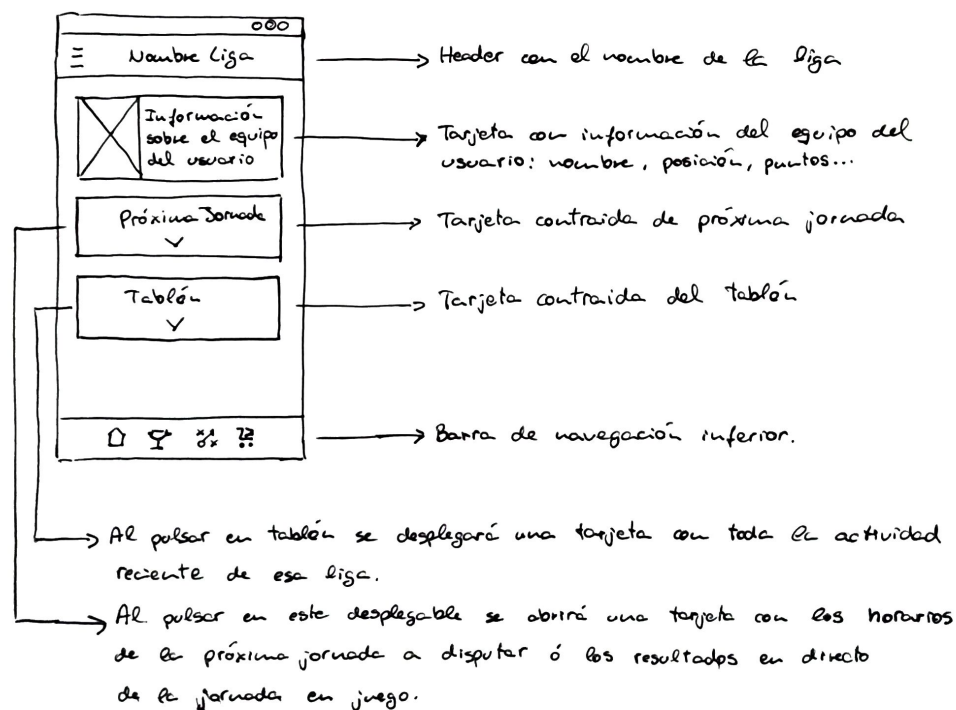 Nombre Liga
Header con el nombre de la liga
Información
sobre el equipo
del usuario
Tarjeta con información del equipo del
usuario: nombre, posición, puntos...
Próxima Jornada
Tarjeta contraida de próxima jornada
Tablón
Tarjeta contraida del tablón
Barra de navegación inferior.
Al pulsar en tablón se desplegará una tarjeta con toda la actividad
reciente de esa liga.
Al pulsar en este desplegable se abrirá una tarjeta con los horarios
de la próxima jornada a disputar ó los resultados en directo
de la jornada en juego.